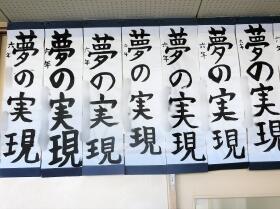 夢の実現
六年
夢の実現
六年
夢の実現
六年
夢の実現
六年
夢の実現
六年
夢の実現
六年
夢の実現
六年